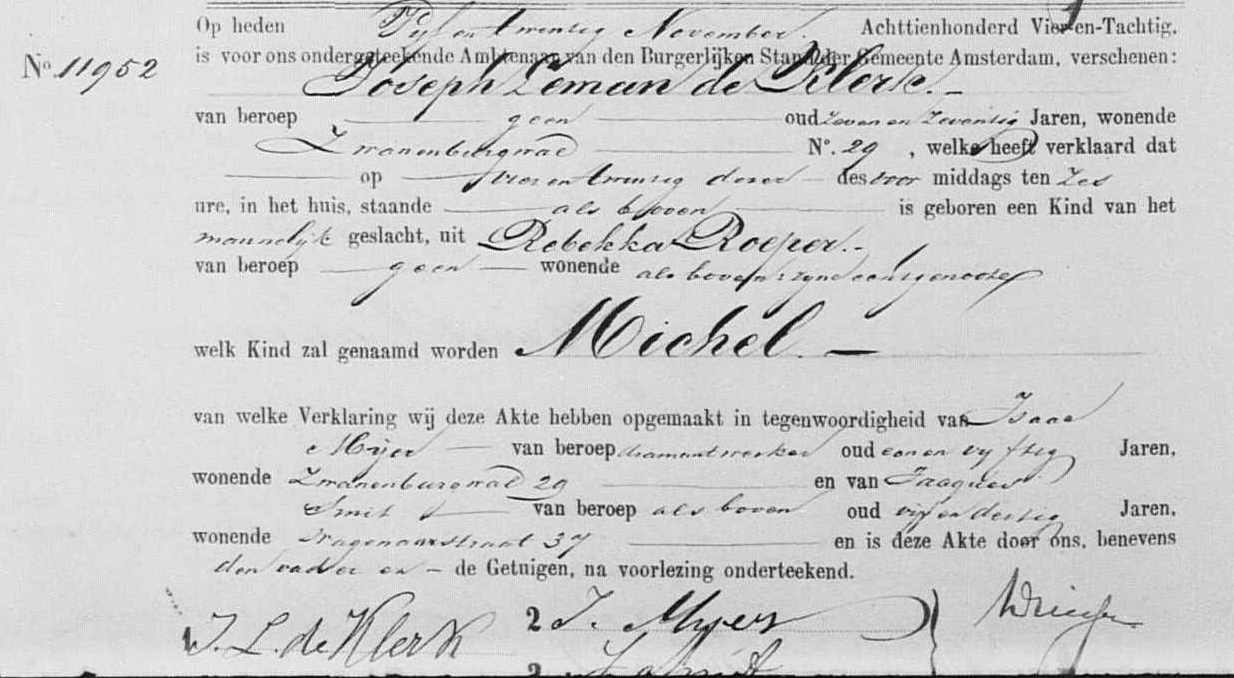 Op heden Vijf en twintig November. Achttienhonderd Vier-en-Tachtig,
No. 11952 is voor ons ondergeteekende Ambtenaar van den Burgerlijken Stand der Gemeente Amsterdam, verschenen:
Joseph Leman de Klerk.
van beroep geen oud zeven en zeventig Jaren, wonende
Zwanenburgwal No. 29 , welke heeft verklaard dat
op vier en twintig dezer des voor middags ten zes
ure, in het huis, staande als boven is geboren een Kind van het
mannelijk geslacht, uit Rebekka Roeper.
van beroep geen wonende als boven zijne echtgenoote
welk Kind zal genaamd worden Michel.
van welke Verklaring wij deze Akte hebben opgemaakt in tegenwoordigheid van Isaac
Mijer van beroep diamantwerker oud een en vijftig Jaren,
wonende Zwanenburgwal 29 en van Jacques
Smit van beroep als boven oud vijf en dertig Jaren,
wonende 37 en is deze Akte door ons, benevens
den vader en de Getuigen, na voorlezing onderteekend.
J. L. de Klerk 2 J. Myers